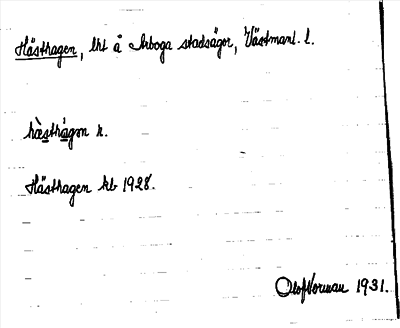 Hästhagen, lht å Arboga stadsägor, Västmanl. l.
hä̀sthágən n.
Hästhagen kb 1928.
Olof Norman 1931.